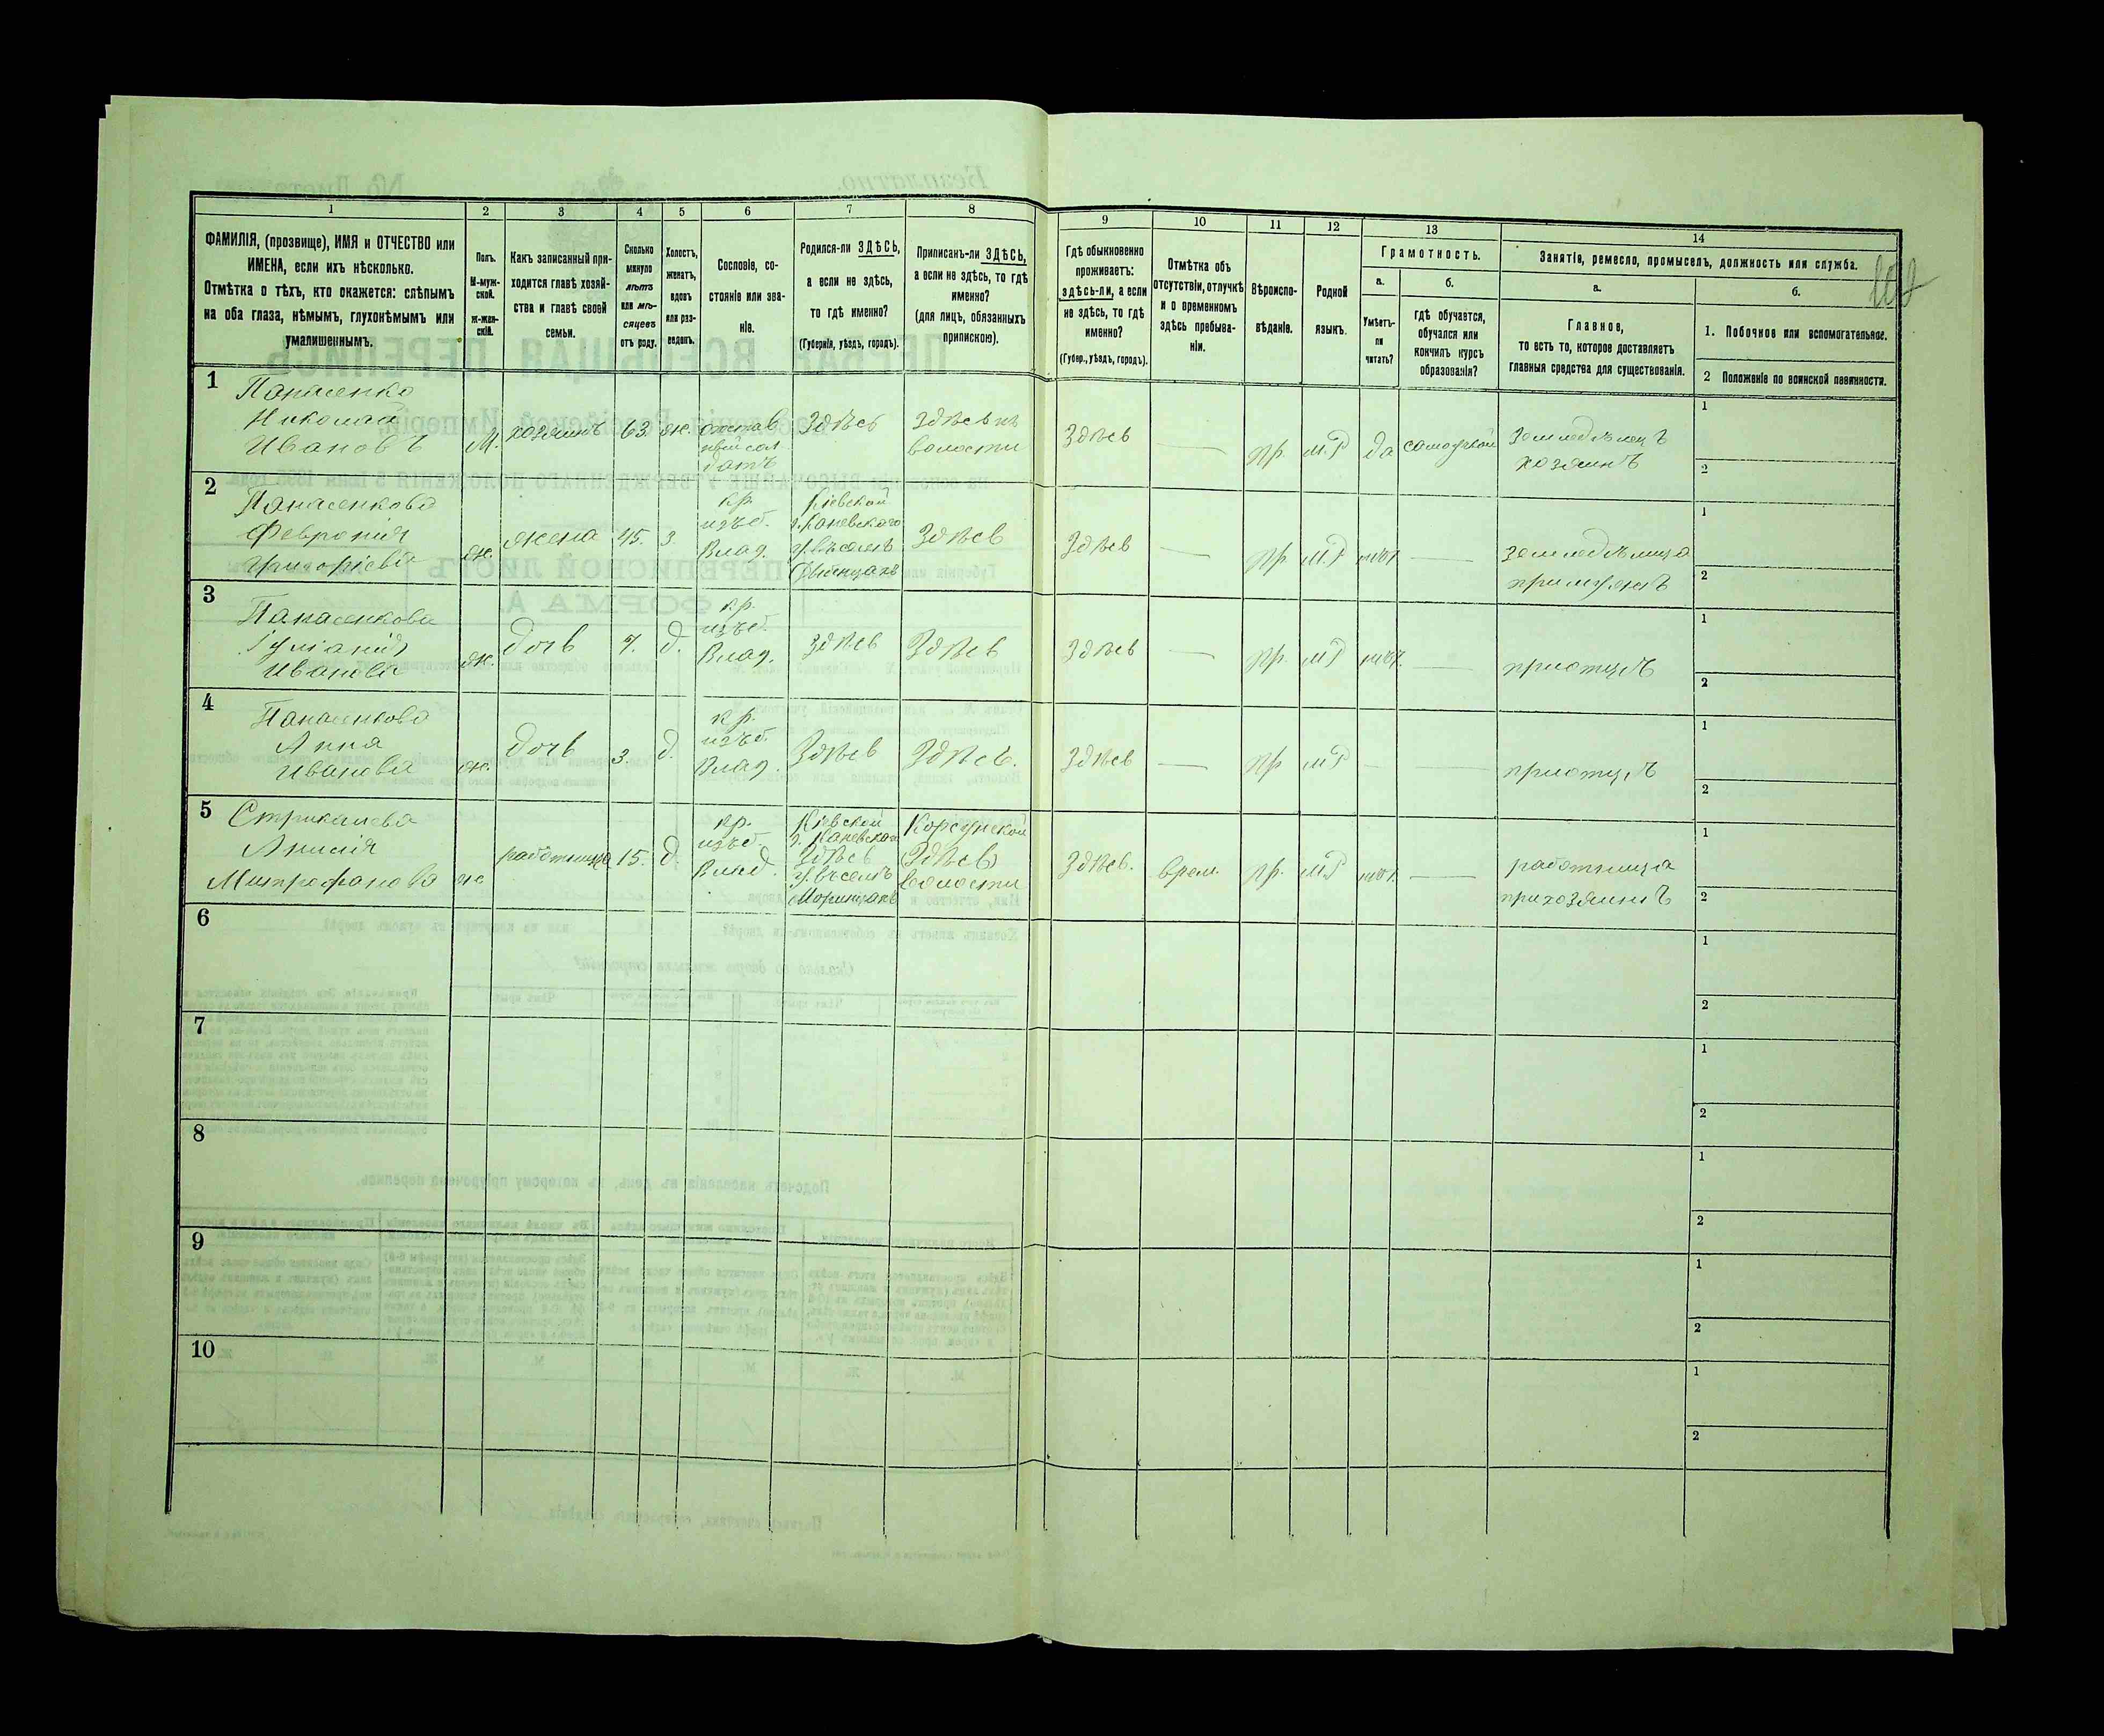 1 2 3 4 5 6 7 8 9 10 11 12 13 14
ФАМИЛІЯ, (прозвище), ИМЯ и ОТЧЕСТВО или
ИМЕНА, если ихъ нѣсколько.
Отмѣтка о тѣхъ, кто окажется: слѣпымъ
на оба глаза, нѣмымъ, глухонѣмымъ или
умалишеннымъ.
Полъ.
М-муж-
ской.
ж-жен-
скій.
Какъ записанный при-
ходится главѣ хозяй-
ства и главѣ своей
семьи.
Сколько
минуло
лѣтъ
или мѣ-
сяцевъ
отъ роду.
Холостъ,
женатъ,
вдовъ
или раз-
веденъ.
Сословіе, со-
стояніе или зва-
ніе.
Родился-ли ЗДѢСЬ,
а если не здѣсь,
то гдѣ именно?
(Губернія, уѣздъ, городъ).
Приписанъ-ли ЗДѢСЬ,
а если не здѣсь, то гдѣ
именно?
(для лицъ, обязанныхъ
припискою).
Гдѣ обыкновенно
проживаетъ:
здѣсь-ли, а если
не здѣсь, то гдѣ
именно?
(Губер., уѣздъ, городъ).
Отмѣтка объ
отсутствіи, отлучкѣ
и о временномъ
здѣсь пребыва-
ніи.
Вѣроиспо-
вѣданіе.
Родной
языкъ.
Грамотность.
а.
Умѣетъ-
ли
читать?
б.
гдѣ обучается,
обучался или
кончилъ курсъ
образованія?
Занятіе, ремесло, промыселъ, должность или служба.
а.
Главное,
то есть то, которое доставляетъ
главныя средства для существованія.
б.
1. Побочное или вспомогательное.
2 Положеніе по воинской повинности.
1
Панасенко
Николай
Ивановъ
М.
хозяинъ
63
ж.
отстав
ной сол
датъ
Здѣсь
Здѣсь въ
волости
Здѣсь
—
пр.
м.Р
да
самоучкой
земледѣлецъ
хозяинъ
1
2
2
Панасенкова
Февронія
Григоріева
ж.
жена
45.
з.
кр.
изъ б.
Влад.
Кіевской
г. Каневского
у. въ селѣ
Здѣсь
Здѣсь
—
пр.
м.Р
нѣт
—
земледѣлица
при мужѣ
1
2
3
Панасенкова
Іуліанія
Иванова
ж.
дочь
7.
д.
кр.
изъ б.
Влад.
Здѣсь
Здѣсь
Здѣсь
—
пр.
м.Р
нѣт.
—
при отцѣ
1
2
4
Панасенкова
Анна
Иванова
ж.
дочь
3.
д.
кр.
изъ б.
Влад.
Здѣсь
Здѣсь.
Здѣсь
—
пр
м.Р
—
—
при отцѣ
1
2
5
Стрикалева
Анисія
Митрофанова
ж
работница
15.
д.
кр.
изъ б.
Влад.
Кіевской
г. Каневского
Здѣсь
у. въ селѣ
Моринцахъ
Корсунской
(Здѣсь)
волости
Здѣсь.
врем.
пр.
м.Р
нѣт.
—
работница
при хозяинѣ
1
2
6
1
2
7
1
2
8
1
2
9
1
2
10
1
2